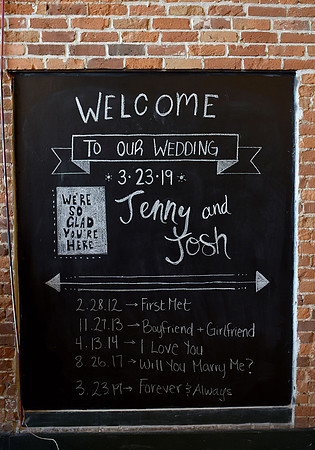 WELCOME
TO OUR WEDDING
3·23·19
WE'RE
SO
GLAD
YOU'RE
HERE
Jenny and
Josh
2.28.12 → First Met
11.27.13 → Boyfriend + Girlfriend
4.13.14 → I Love You
8.26.17 → Will You Marry Me?
3.23.19 → Forever & Always